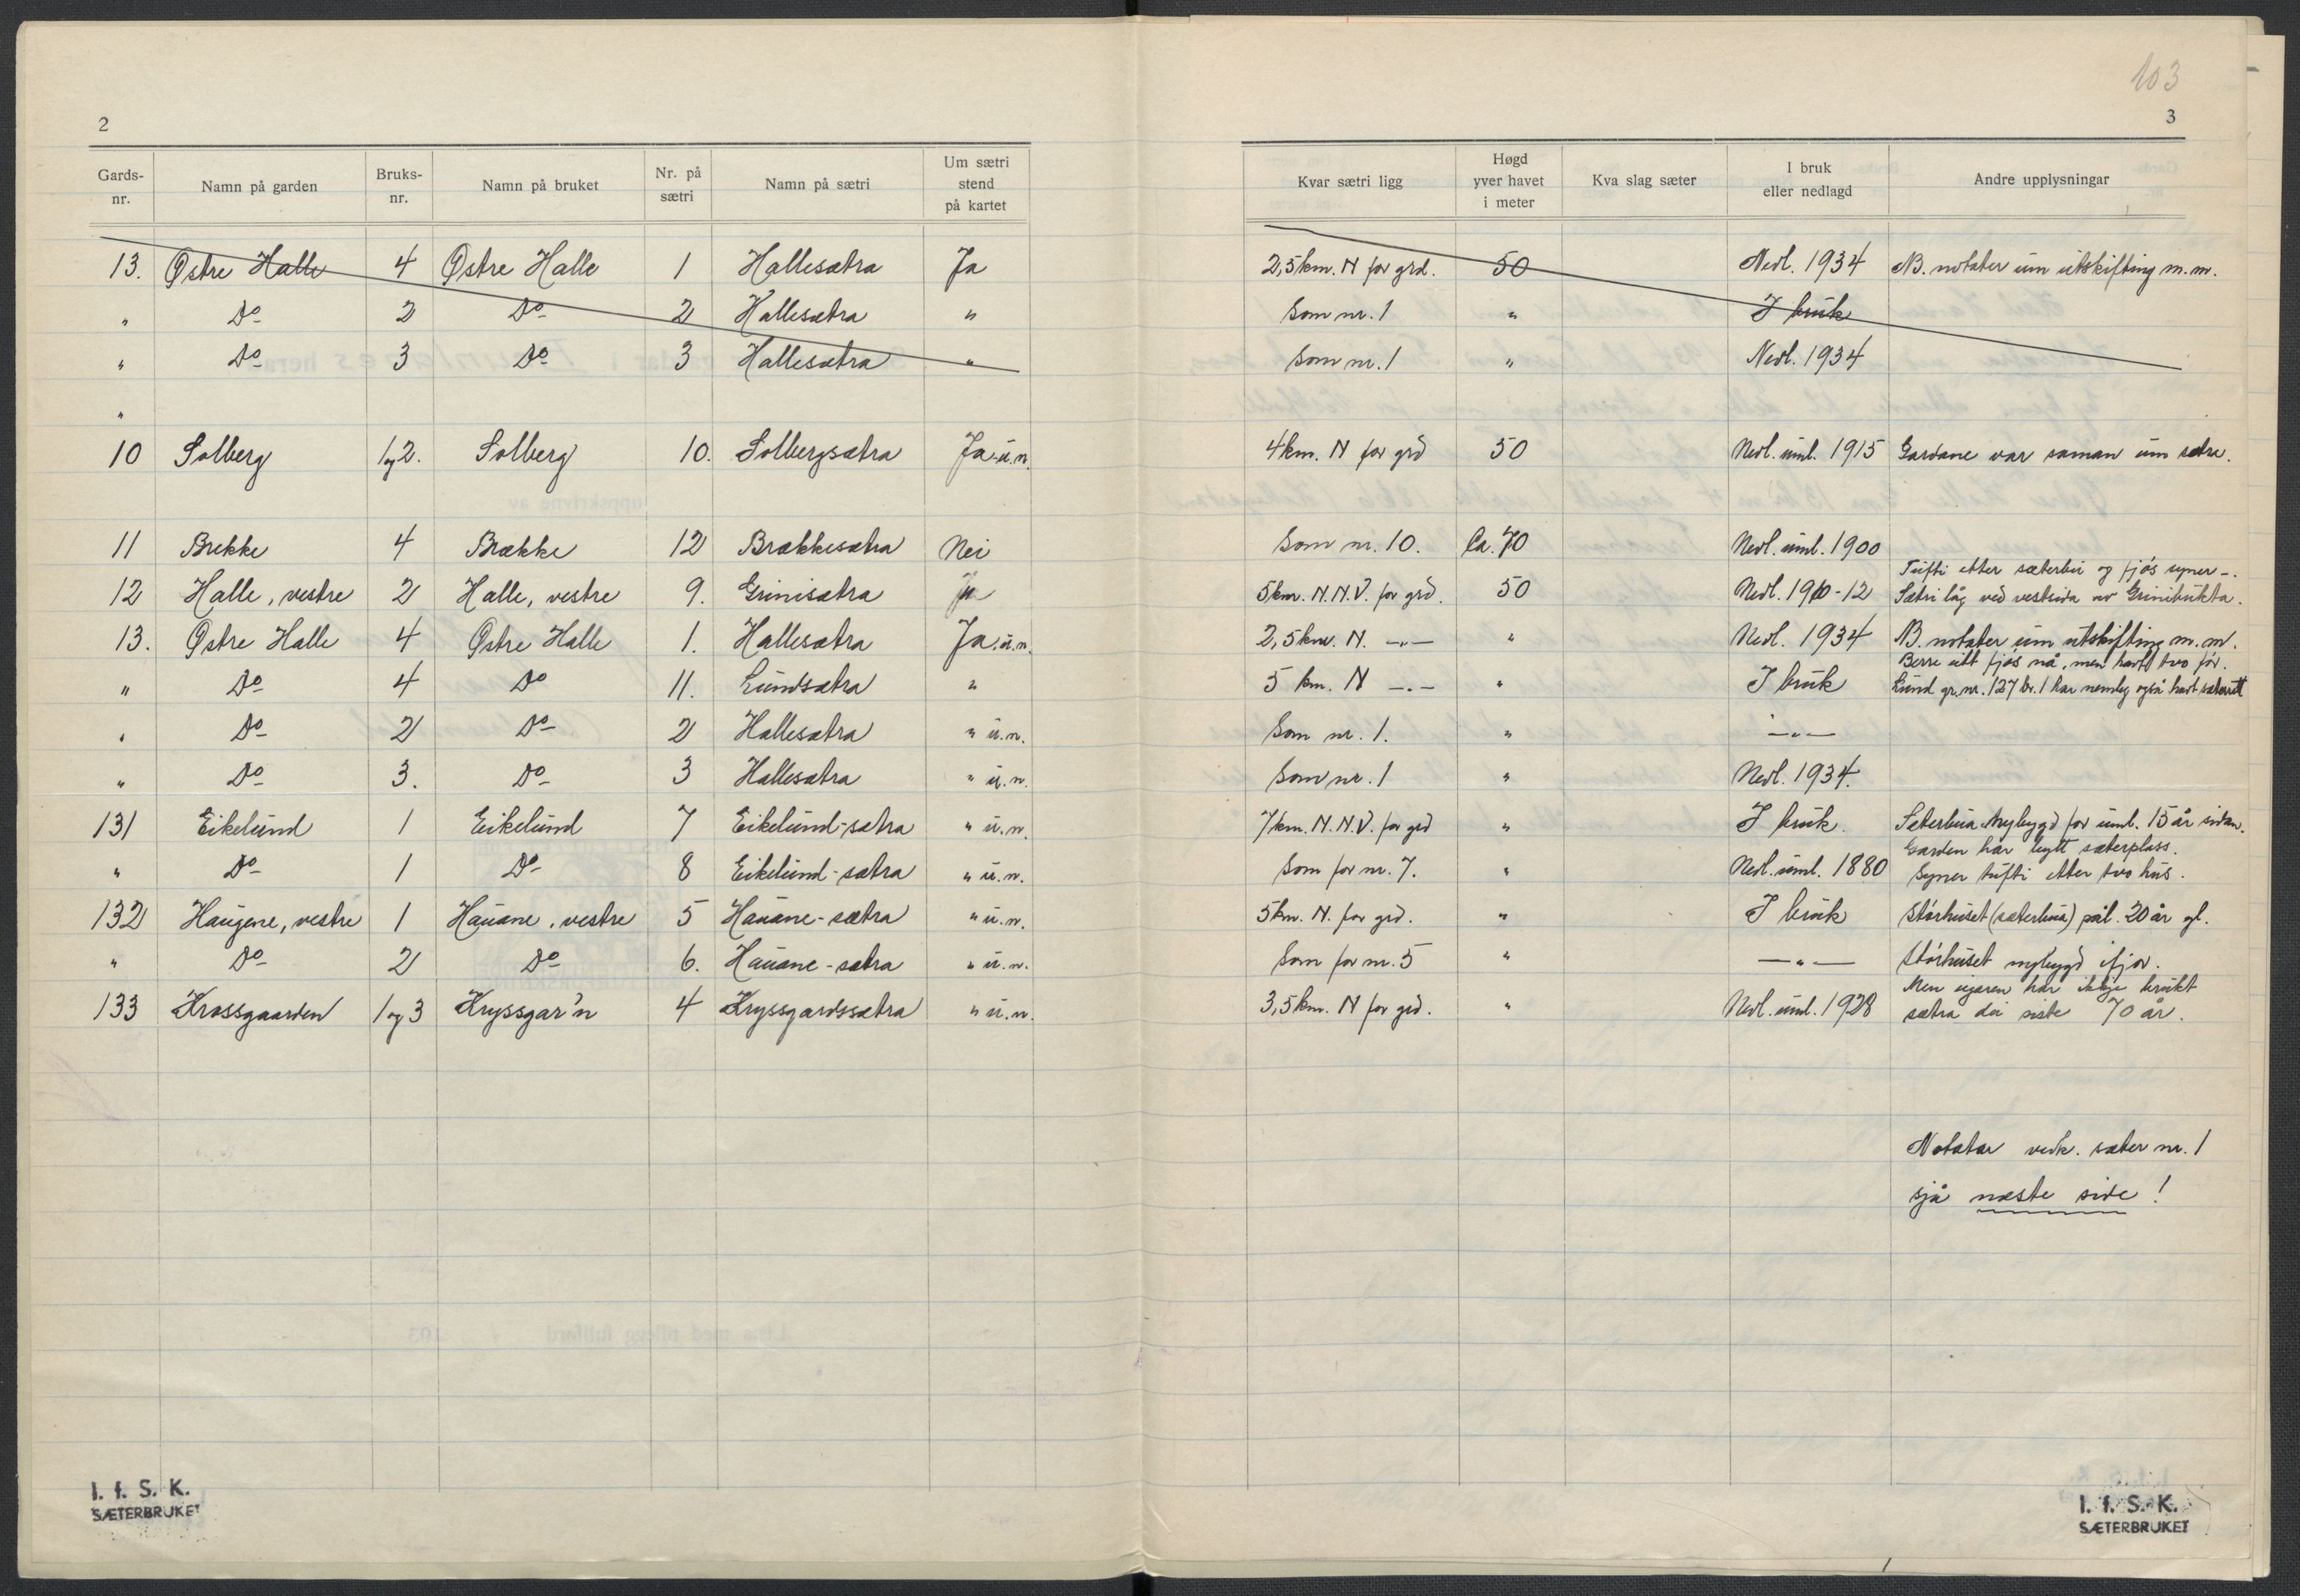 103
2
3
Gards-nr. Namn på garden Bruks-nr. Namn på bruket Nr. på sætri Namn på sætri Um sætri stend på kartet Kvar sætri ligg Høgd yver havet i meter Kva slag sæter I bruk eller nedlagd Andre upplysningar
13. Østre Halle 4 Østre Halle 1 Hallesætra Ja 2,5 km. N for grd. 50 Nedl. 1934 NB. notater um utskifting m.m.
" Do 2 Do 2 Hallesætra " Som nr. 1 " I bruk
" Do 3 Do 3 Hallesætra " Som nr. 1 " Nedl. 1934
"
10 Solberg 1 og 2. Solberg 10. Solbergsætra Ja u.n. 4 km. N for grd 50 Nedl. uml. 1915 Gardane var saman um sætra.
11 Brekke 4 Brække 12 Brækkesætra Nei Som nr. 10. Ca. 70 Nedl. uml. 1900
Tufti etter sæterbu og fjós syner -.
12 Halle, vestre 2 Halle, vestre 9. Grinisætra Ja 5 km. N.N.V. for grd. 50 Nedl. 1910-12 Sætri låg ved vestsida av Grinibukta.
13. Østre Halle 4 Østre Halle 1. Hallesætra Ja u.n. 2,5 km. N. —"— " Nedl. 1934 NB notater um utskifting m.m.
Berre eitt fjós nå, men havt tvo för.
" Do 4 Do 11. Lundsætra " 5 km. N —"— " I bruk Lund gr.nr. 127 br. 1 har nemleg også havt sæterrett
" Do 2 Do 2 Hallesætra " u.n. Som nr. 1. " —"—
" Do 3. Do 3 Hallesætra " u.n. Som nr. 1 " Nedl. 1934.
131 Eikelund 1 Eikelund 7 Eikelund-sætra " u.n. 7 km. N.N.V. for grd " I bruk. Seterbua nybygd for uml. 15 år sidan.
Garden har bytt sæterplass.
" Do 1 Do 8 Eikelund-sætra " u.n. Som for nr. 7. " Nedl. uml. 1880 Syner tufti etter tvo hus.
132 Haugene, vestre 1 Hauane, vestre 5 Hauane-sætra " u.n. 5 km. N. for grd. " I bruk Stórhuset (sæterbua) pål. 20 år gl.
" Do 2 Do 6. Hauane-sætra " u.n. Som for nr. 5 " —"— Stórhuset nybygd ifjor.
Men eigaren har ikkje brukt
133 Krossgaarden 1 og 3 Kryssgar'n 4 Kryssgardssætra " u.n. 3,5 km. N for grd. " Nedl. uml. 1928 sætra dei siste 70 år.
Notatar vedk. sæter nr. 1
sjå næste side!
I. f. S. K.
SÆTERBRUKET
I. f. S. K.
SÆTERBRUKET